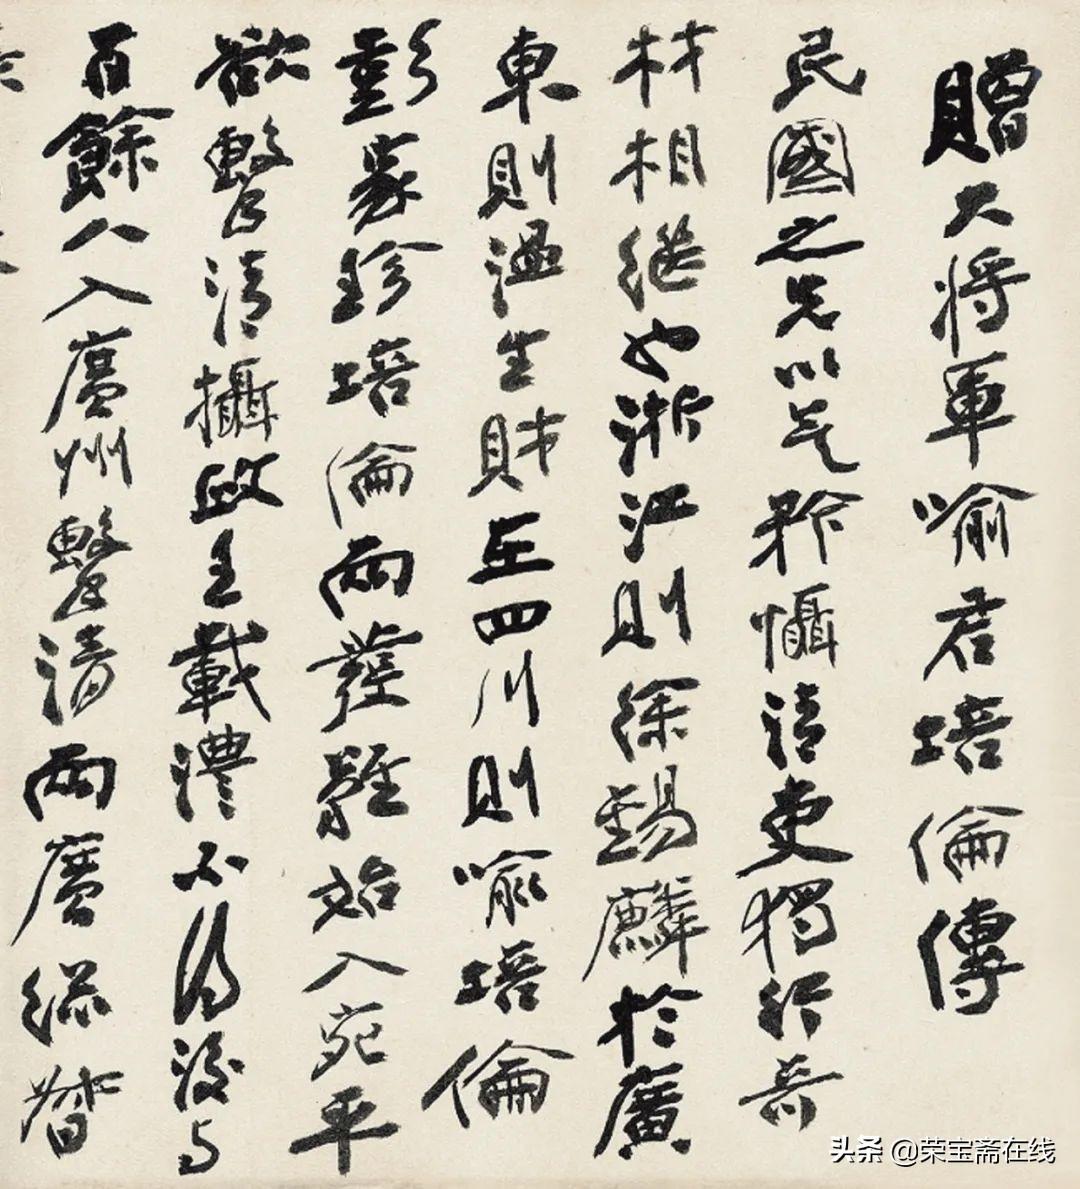 贈大將軍喻君培倫傳
民國之先以气矜懾清吏獨行奇
材相繼也浙江則徐錫麟於廣
東則溫生財在四川則喻培倫
彭家珍培倫兩發難始入宛平
欲擊清攝政王載澧不得後與
百餘人入廣州擊清兩廣總督
头条 @荣宝斋在线